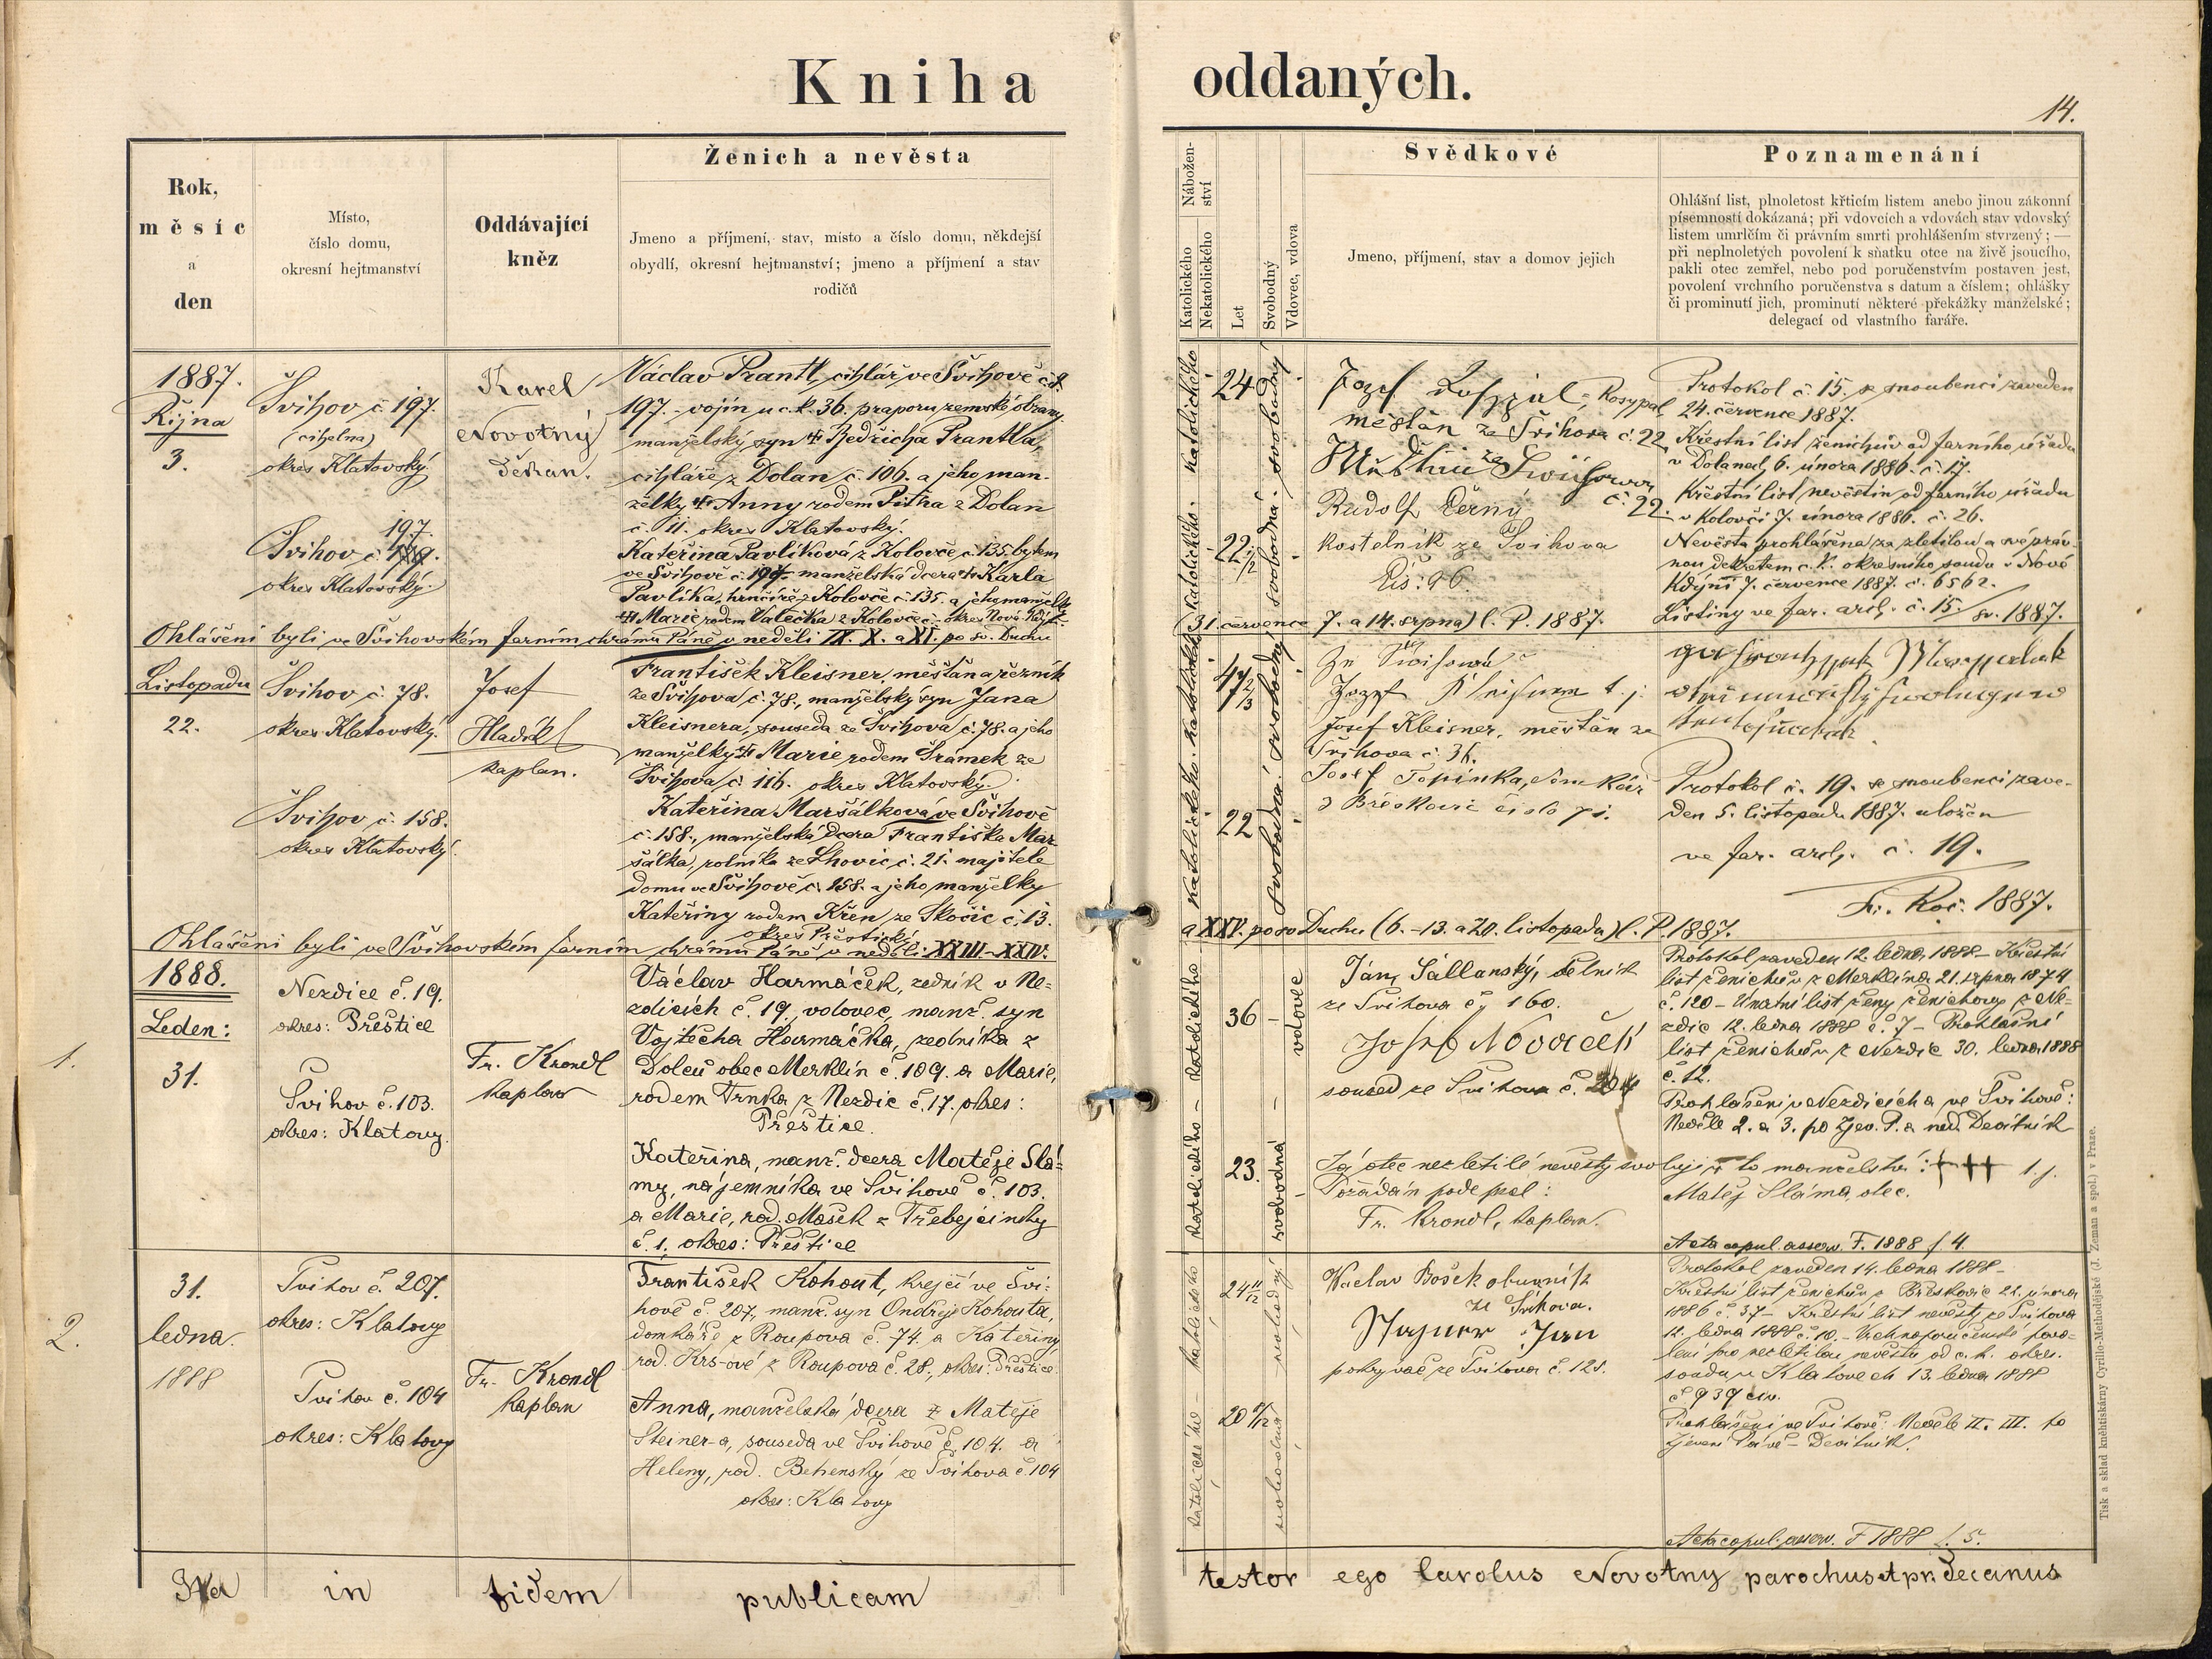 Kniha oddaných.
14.
Rok,
měsíc
a
den
Místo,
číslo domu,
okresní hejtmanství
Oddávající
kněz
Ženich a nevěsta
Jmeno a příjmení, stav, místo a číslo domu, někdejší
obydlí, okresní hejtmanství; jmeno a příjmení a stav
rodičů
Nábožen-
ství
Katolického
Nekatolického
Let
Svobodný
Vdovec, vdova
Svědkové
Jmeno, příjmení, stav a domov jejich
Poznamenání
Ohlášní list, plnoletost křticím listem anebo jinou zákonní
písemností dokázaná; při vdovcích a vdovách stav vdovský
listem umrlčím či právním smrti prohlášením stvrzený; —
při neplnoletých povolení k sňatku otce na živě jsoucího,
pakli otec zemřel, nebo pod poručenstvím postaven jest,
povolení vrchního poručenstva s datum a číslem; ohlášky
či prominutí jich, prominutí některé překážky manželské;
delegací od vlastního faráře.
1887.
Října
3.
Švihov č. 197.
(cihelna)
okres Klatovský.
197.
Švihov č.
okres Klatovský.
Karel
Novotný
děkan.
Václav Prantl, cihlář ve Švihově č.
197. - vojín u c. k. 36. praporu zemské obrany
manželský syn † Bedřicha Prantla,
cihláře z Dolan č. 106. a jeho man-
želky † Anny rodem Pitha z Dolan
č. 11. okres Klatovský.
Kateřina Pavlíková z Kolovče č. 135. bytem
ve Švihově č. 197. manželská dcera † Karla
Pavlíka, hrnčíře z Kolovče č. 135. a jeho manželk
† Marie rodem Valečka z Kolovče
katolického. katolického.
24
22 1/2
svobodná. svobodný
Rosypal,
měšťan ze Švihova č. 22
č. 22.
Rudolf Černý
kostelník ze Švihova
Čís: 96.
Protokol č. 15. se snoubenci zaveden
24. července 1887.
Křestní list ženichův od farního úřadu
v Dolanech 6. února 1886. č. 17.
Křestní list nevěstin od farního úřadu
v Kolovči 7. února 1886. č. 26.
Nevěsta prohlášena za zletilou a svépráv-
nou dekretem c. k. okresního soudu v Nové
Kdýni 7. července 1887. č. 6562.
Listiny ve far. arch. č. 15. / sv. 1887.
Ohlášeni byli ve Švihovském farním chrámu Páně v neděli IX. X. a XI. po sv. Duchu
(31. července 7. a 14. srpna) l. P. 1887.
Listopadu
22.
Švihov č. 78.
okres Klatovský.
Švihov č. 158.
okres Klatovský.
Josef
Hladík
kaplan.
František Kleisner, měšťan a řezník
ze Švihova č. 78., manželský syn Jana
Kleisnera, souseda ze Švihova č. 78. a jeho
manželky † Marie rodem Šrámek ze
Švihova č. 116. okres Klatovský.
Kateřina Maršálková ve Švihově
č. 158., manželská dcera Františka Mar
šálka, rolníka ze Lhovic č. 21. majitele
domu ve Švihově č. 158. a jeho manželky
Kateřiny rodem Křen ze Skočic č. 13.
okres Přeštický
katolického. katolického
47 2/3
22
svobodná. svobodný
Josef Kleisner, měšťan ze
Švihova č. 36.
Josef Topinka, domkář
z Břiskovic číslo 71.
Protokol č. 19. se snoubenci zave-
den 5. listopadu 1887. uložen
ve far. arch. č. 19.
1887.
Ohlášeni byli ve Švihovském farním chrámu Páně v neděli XXIII. XXIV.
a XXV. po sv Duchu (6. - 13. a 20. listopadu) l. P. 1887.
1888.
Leden:
1.
31.
Nezdice č. 19.
okres: Přeštice
Švihov č. 103.
okres: Klatovy.
Fr. Krondl
kaplan
Václav Harmáček, zedník v Ne-
zdicích č. 19., vdovec, manž. syn
Vojtěcha Harmáčka, zedníka z
Dolců obec Merklín č. 109. a Marie,
rodem Trnka z Nezdic č. 17. okres:
Přeštice.
Kateřina, manž. dcera Matěje Slá-
my, nájemníka ve Švihově č. 103.
a Marie, rod. Mašek z Třebejčinky
č. 1. okres: Přeštice
katolického - katolického
36
23.
svobodná - vdovec
Ján Sallanský, dělník
ze Švihova čj 160.
Josef Nováček
soused ze Švihova č.
Já otec nezletilé nevěsty svoluji k to manželství: +++ 1. j.
Požádán podepsal: Matěj Sláma otec.
Fr. Krondl, kaplan.
Protokol zaveden 12. ledna 1888 - Křestní
list ženichův z Merklína 21. srpna 1874
č. 120 - Úmrtní list ženy ženichovy z Ne-
zdic 12. ledna 1888 č. 7 - Prohlášní
list ženichův z Nezdic 30. ledna 1888
č. 12.
Prohlášeni v Nezdicích a ve Švihově:
Neděle 2. a 3. po Zjev. P. a ned. Devítník
Acta copul. asserv. F. 1888 f. 4.
2.
31.
ledna.
1888
Švihov č. 207.
okres: Klatovy
Švihov č. 104
okres: Klatovy
Fr. Krondl
kaplan
František Kohout, krejčí ve Švi-
hově č. 207., manž. syn Ondřeje Kohouta,
domkáře z Roupova č. 74. a Kateřiny
rod. Krs-ové z Roupova č. 28., okres: Přeštice.
Anna, manželská dcera † Matěje
Steiner-a, souseda ve Švihově č. 104. a
Heleny, rod. Behenský ze Švihova č. 104
okres: Klatovy
katolického - katolického
24 11/12
svobodná - svobodný
Waclav Bošek obuvník
ze Švihova.
Wagner Jan
pokryvač ze Švihova č. 121.
Protokol zaveden 14. ledna 1888 -
Křestní list ženichův z Březkovic 21. února
1886 č. 37 - Křestní list nevěsty ze Švihova
12. ledna 1888 č. 10. - Vrchnoporučenské povo-
lení pro nezletilou nevěstu od c. k. okres.
soudu v Klatovech 13. ledna 1888
č 939 civ.
Prohlášeni ve Švihově: Neděle II. III. po
Zjevení Páně - Devítník.
Acta copul. asserv. F 1888 f. 5.
Ita in fidem publicam testor ego Carolus Novotny parochus et pr. decanus
Tisk a sklad kněhtiskárny Cyrillo-Methodějské (J. Zeman a spol.) v Praze.